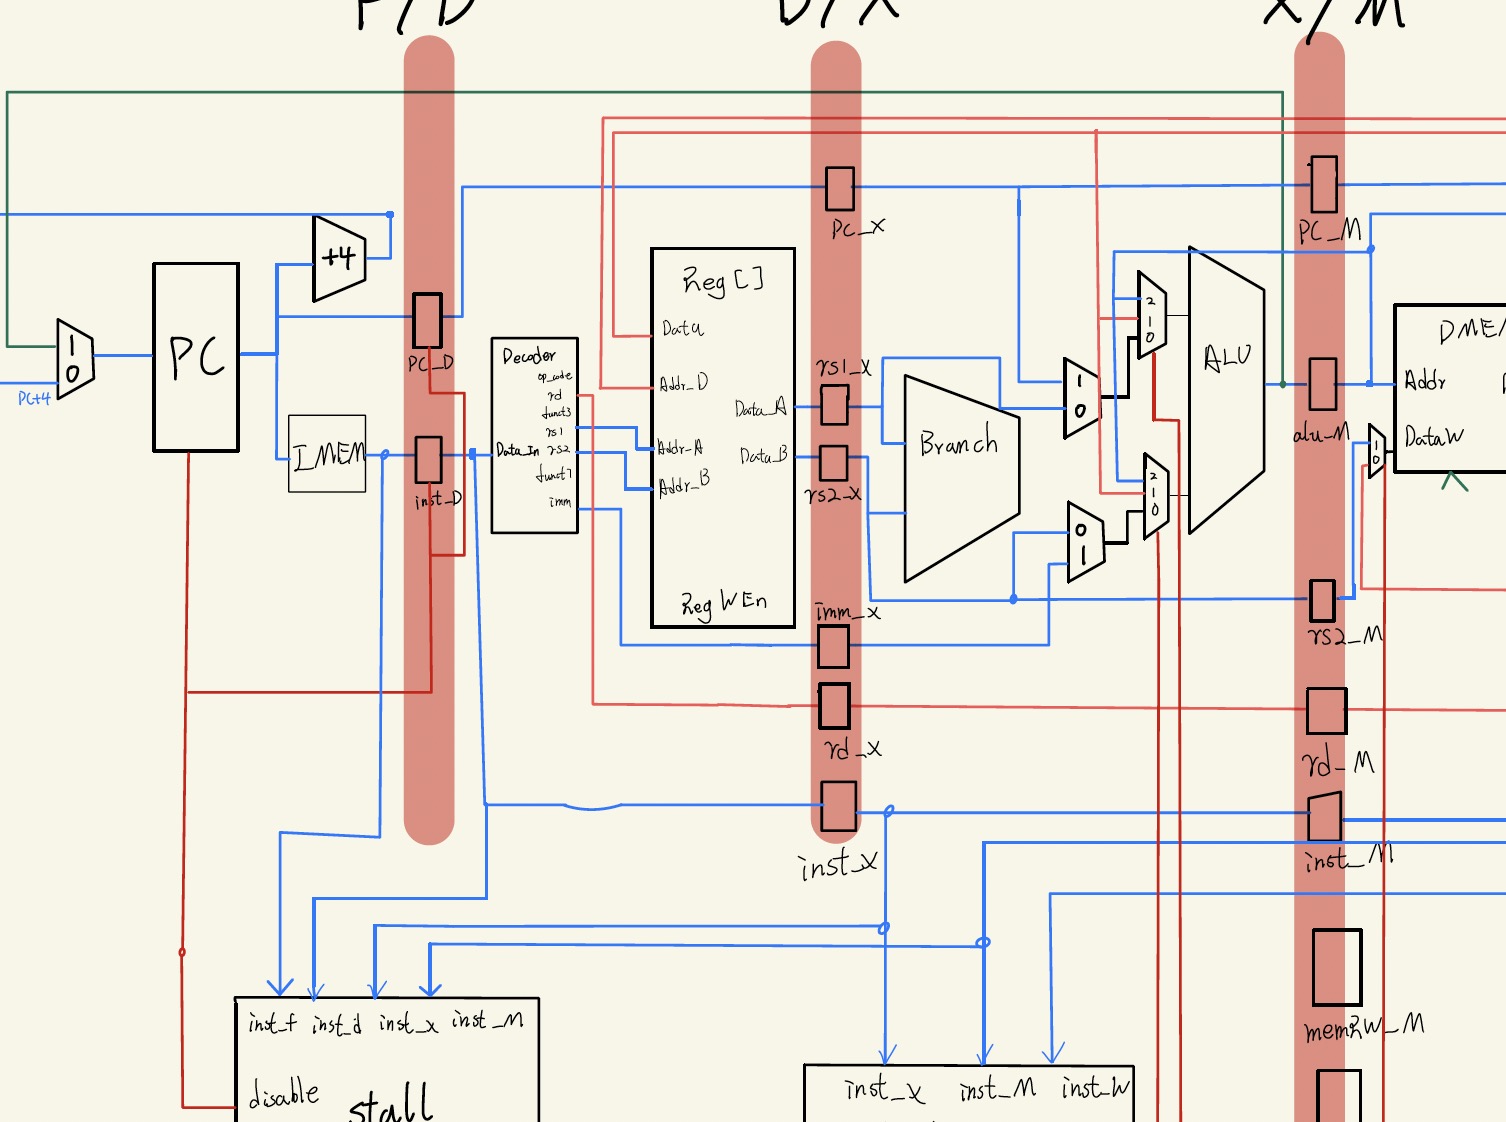 F/D
D/X
X/M
+4
PC
1
0
PC+4
IMEM
PC_D
inst_D
Decoder
op_code
rd
funct3
rs1
Data_In
rs2
funct7
imm
Reg[]
Data
Addr_D
Data_A
Addr_A
Data_B
Addr_B
Reg WEn
PC_X
rs1_X
rs2_X
imm_X
rd_X
inst_X
Branch
1
0
0
1
2
1
0
2
1
0
ALU
PC_M
alu_M
rs2_M
rd_M
inst_M
mem2W_M
1
0
DMEM
Addr
DataW
inst_f
inst_d
inst_x
inst_M
disable
stall
inst_X
inst_M
inst_W